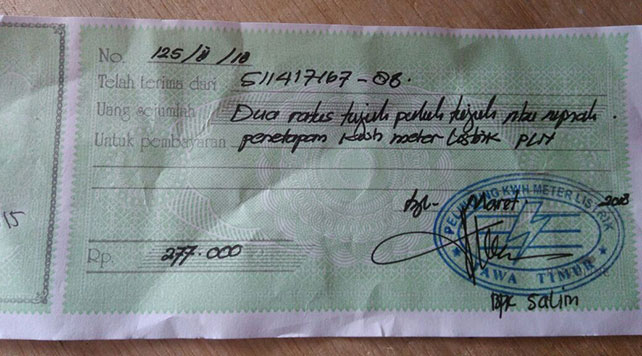 No. 125/ii/18
Telah terima dari 511417167-QB.
Uang sejumlah Dua ratus tujuh puluh tujuh ribu rupiah.
Untuk pembayaran penetapan kwh meter listrik PLN
15
Maret 2018
PELINDUNG KWH METER LISTRIK
JAWA TIMUR
Rp. 277.000
Bpk Salim